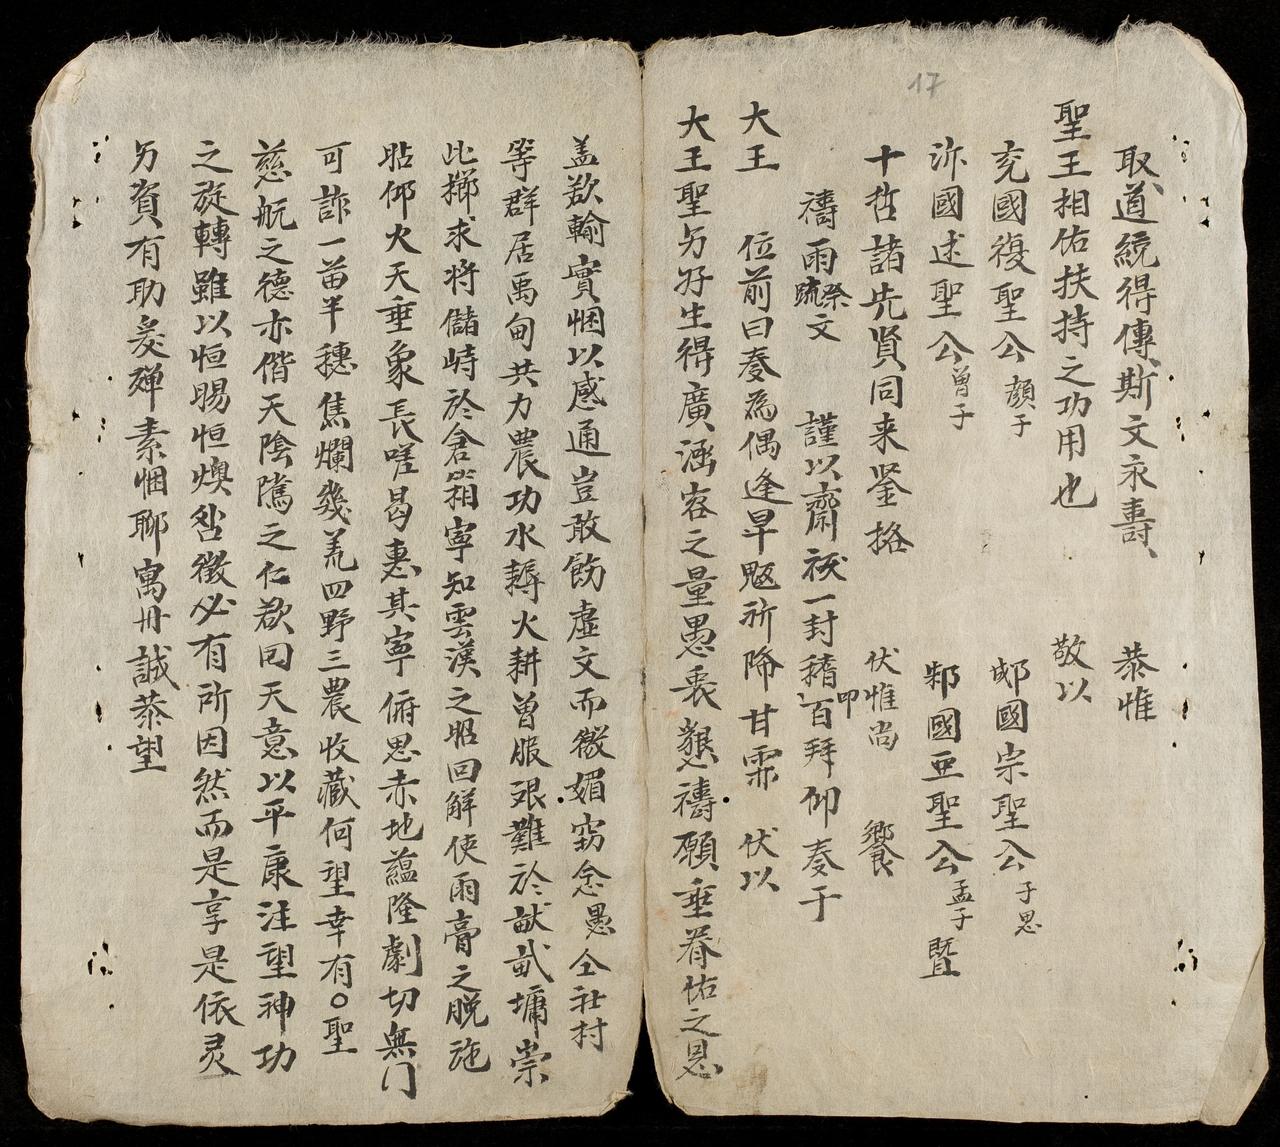 17
取道統得傳斯文永壽 恭惟
聖王相佑扶持之功用也 敬以
兗國復聖公顏子 郕國宗聖公子思
沂國述聖公曾子 鄒國亞聖公孟子暨
十哲諸先賢同来鉴格 伏惟尚 饗
禱雨祭䟽文 謹以齋祓一封稽百拜仰奏于
叩
大王 位前曰奏為偶逢旱魃祈降甘霈 伏以
大王聖另好生得廣涵容之量愚衷懇禱願垂眷佑之恩
盖欲輸實悃以感通豈敢飭虛文而徼媚窃念愚仝社村
等群居禹甸共力農功水耨火耕曽服艰難於畎畝墉崇
此櫛求将儲峙於倉箱寧知雲漢之昭回解使雨膏之脱施
呫仰火天垂象長嗟曷惠其寧俯思赤地蘊隆劇切無门
可訴一苗半穗焦爛幾荒四野三農收藏何望幸有○聖
慈航之德亦偕天陰隲之仁欲回天意以平康注望神功
之旋轉雖以恒暘恒燠咎徵必有所因然而是享是依灵
另資有助爰殫素悃聊寓冊誠恭望